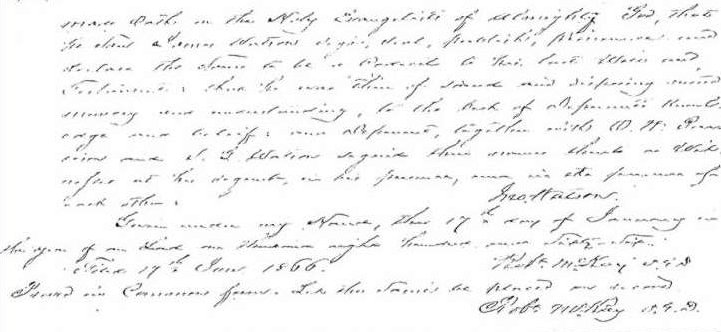 made Oath on the Holy Evangelists of Almighty God, that
he saw Watson sign, seal, publish, pronounce and
declare the same to be a Codicil to his last Will and
Testament; that he was then of sound and disposing mind
memory and understanding, to the best of deponents knowl-
edge and belief; and deponent, together with W. H.
and J. Watson signed their names thereto as Wit-
nesses at his request, in his presence, and in the presence of
each other.
Jno. Watson.
Given under my Hand, this 17th day of January in
the year of our Lord one thousand eight hundred and sixty-six.
Filed 17th Jany 1866. Robt. McKay
Proved in Common form. Let the same be placed on record.
Robt. McKay